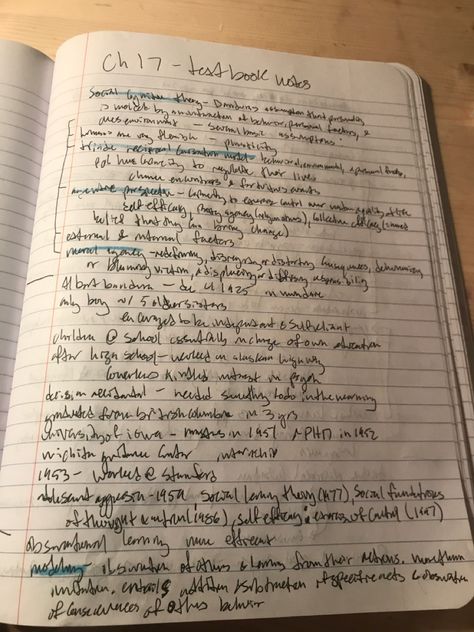 Ch 17 - textbook notes
Social Cognitive theory - Bandura's assumption that personality
is molded by an interaction of behavior, personal factors, &
ones environment - several basic assumptions:
humans are very flexible - plasticity
triadic reciprocal causation model: behavioral, environmental, & personal factors,
ppl have capacity to regulate their lives
chance encounters & fortuitous events
agentive perspective - capacity to exercise control over nature & quality of life
self efficacy, proxy agency, collective efficacy (
belief that they can bring change)
external & internal factors
moral agency - redefining, disregarding or distorting consequences, dehumanizing
or blaming victim, & displacing or diffusing responsibility
Albert bandura - dec 4 1925 in mundare
only boy w/ 5 older sisters
encouraged to be independent & self reliant
children @ school essentially in charge of own education
after high school - worked on alaskan highway
coworkers kindled interest in psych
decision accidental - needed something to do in the morning
graduated from british columbia in 3 yrs
university of iowa - masters in 1951 & PHD in 1952
wichita guidance center internship
1953 - worked @ stanford
adolescent aggression - 1959 Social learning theory (1977), Social foundations
of thought & action (1986), self efficacy: exercise of control (1997)
observational learning more efficient
modeling observation of others & learning from their actions. more than
imitation. entails addition & subtraction of specific acts & observation
of consequences of others behavior